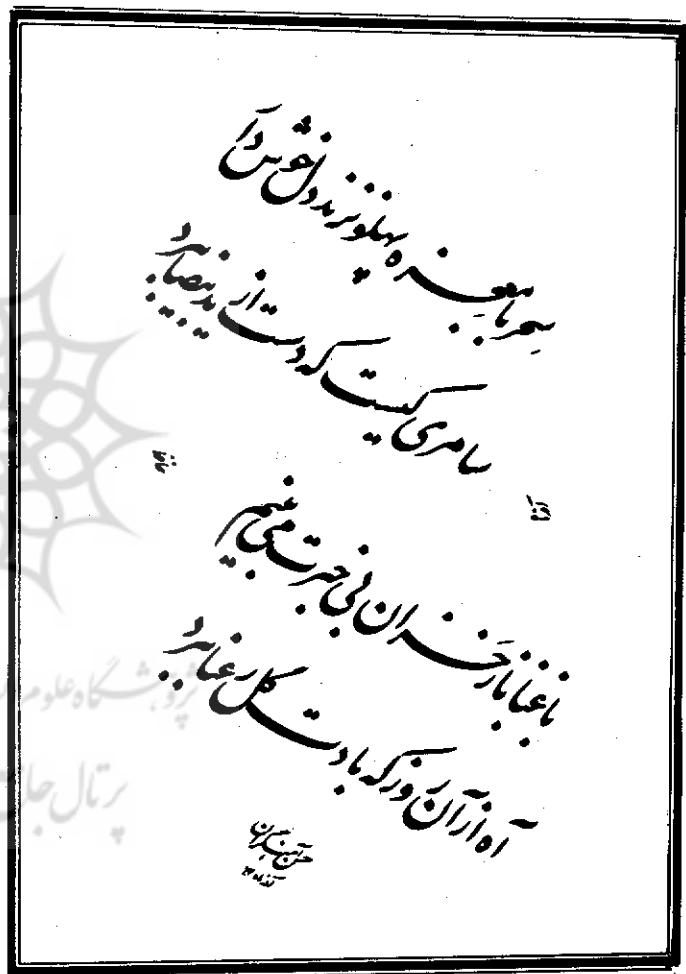 سحر با معجزه پهلو نزند دل خوش دار
سامری کیست که دست از ید بیضا ببرد
حافظ
باغبانا ز خزان بی خبرت می بینم
آه از آن روز که بادت گل رعنا ببرد
پژوهشگاه علوم
پرتال جا